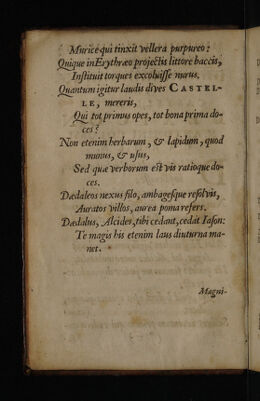 Murice qui tinxit vellera purpureo:
Quique in Erythræo projectis littore baccis,
Instituit torques excoluisse nurus.
Quantum igitur laudis dives CASTEL-
LE, mereris,
Qui tot primus opes, tot bona prima do-
ces?
Non etenim herbarum, & lapidum, quod
munus, & usus,
Sed quæ verborum est vis ratioque do-
ces.
Dædaleos nexus filo, ambagesque resolvis,
Auratos villos, aurea poma refers.
Dædalus, Alcides, tibi cedant, cedat Iason:
Te magis his etenim laus diuturna ma-
net.
Magni-